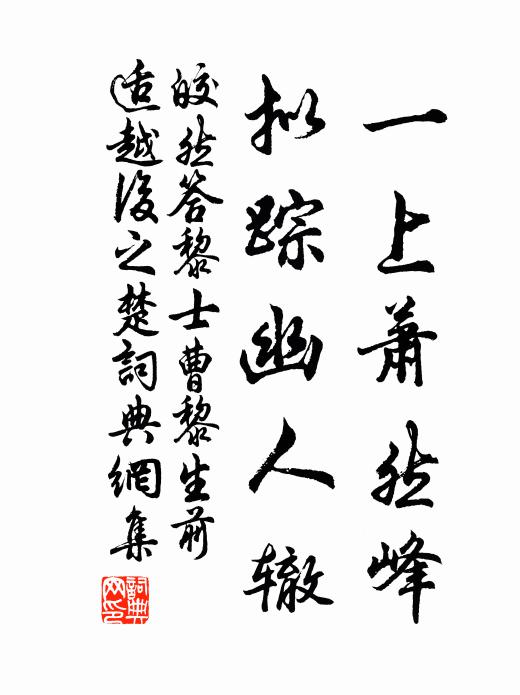 一上萧然峰
拟踪幽人辙
皎然答黎士曹黎生前
适越后之楚詞典網集
詞典网印